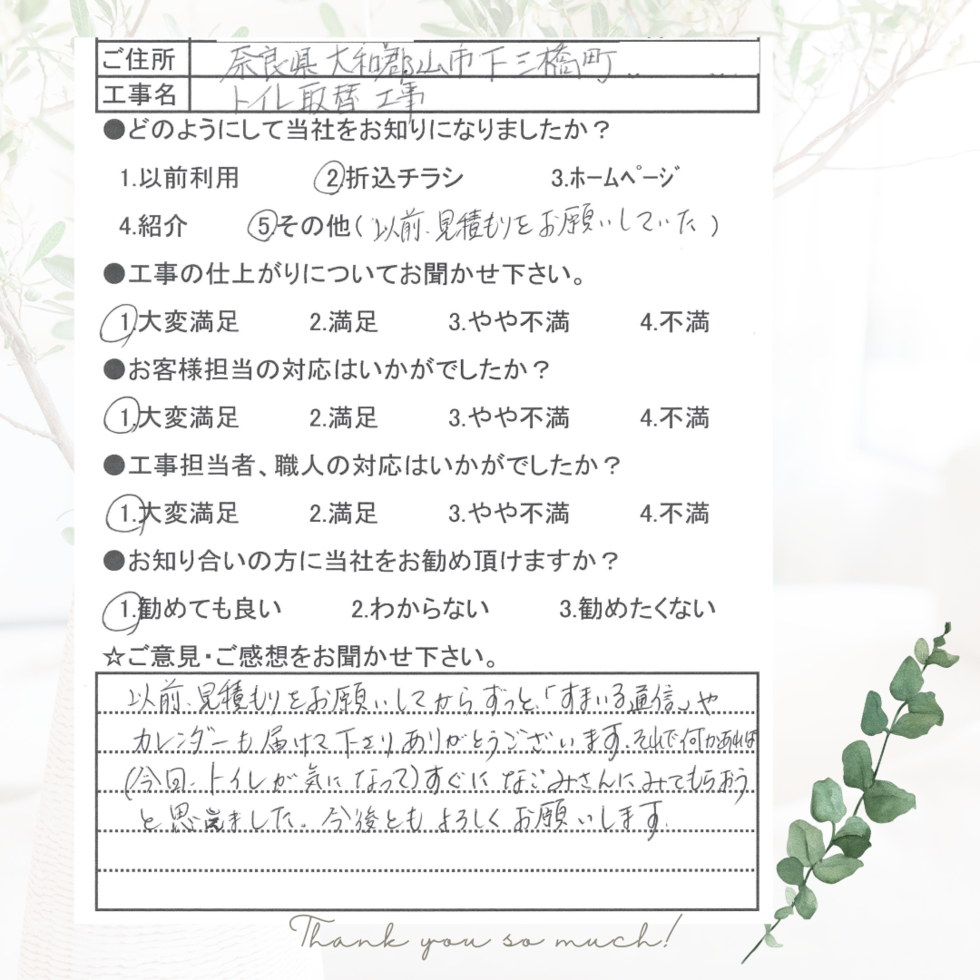 ご住所 奈良県大和郡山市下三橋町
工事名 トイレ取替工事
●どのようにして当社をお知りになりましたか？
1.以前利用 2折込チラシ 3.ホームページ
4.紹介 5その他(以前、見積もりをお願いしていた)
●工事の仕上がりについてお聞かせ下さい。
1.大変満足 2.満足 3.やや不満 4.不満
●お客様担当の対応はいかがでしたか？
1.大変満足 2.満足 3.やや不満 4.不満
●工事担当者、職人の対応はいかがでしたか？
1.大変満足 2.満足 3.やや不満 4.不満
●お知り合いの方に当社をお勧め頂けますか？
1.勧めても良い 2.わからない 3.勧めたくない
☆ご意見・ご感想をお聞かせ下さい。
以前、見積もりをお願いしてからずっと、「すまいる通信」や
カレンダーも届けて下さりありがとうございます。それで何かあれば
(今回、トイレが気になって)すぐになごみさんにみてもらおう
と思いました。今後ともよろしくお願いします。
Thank you so much!